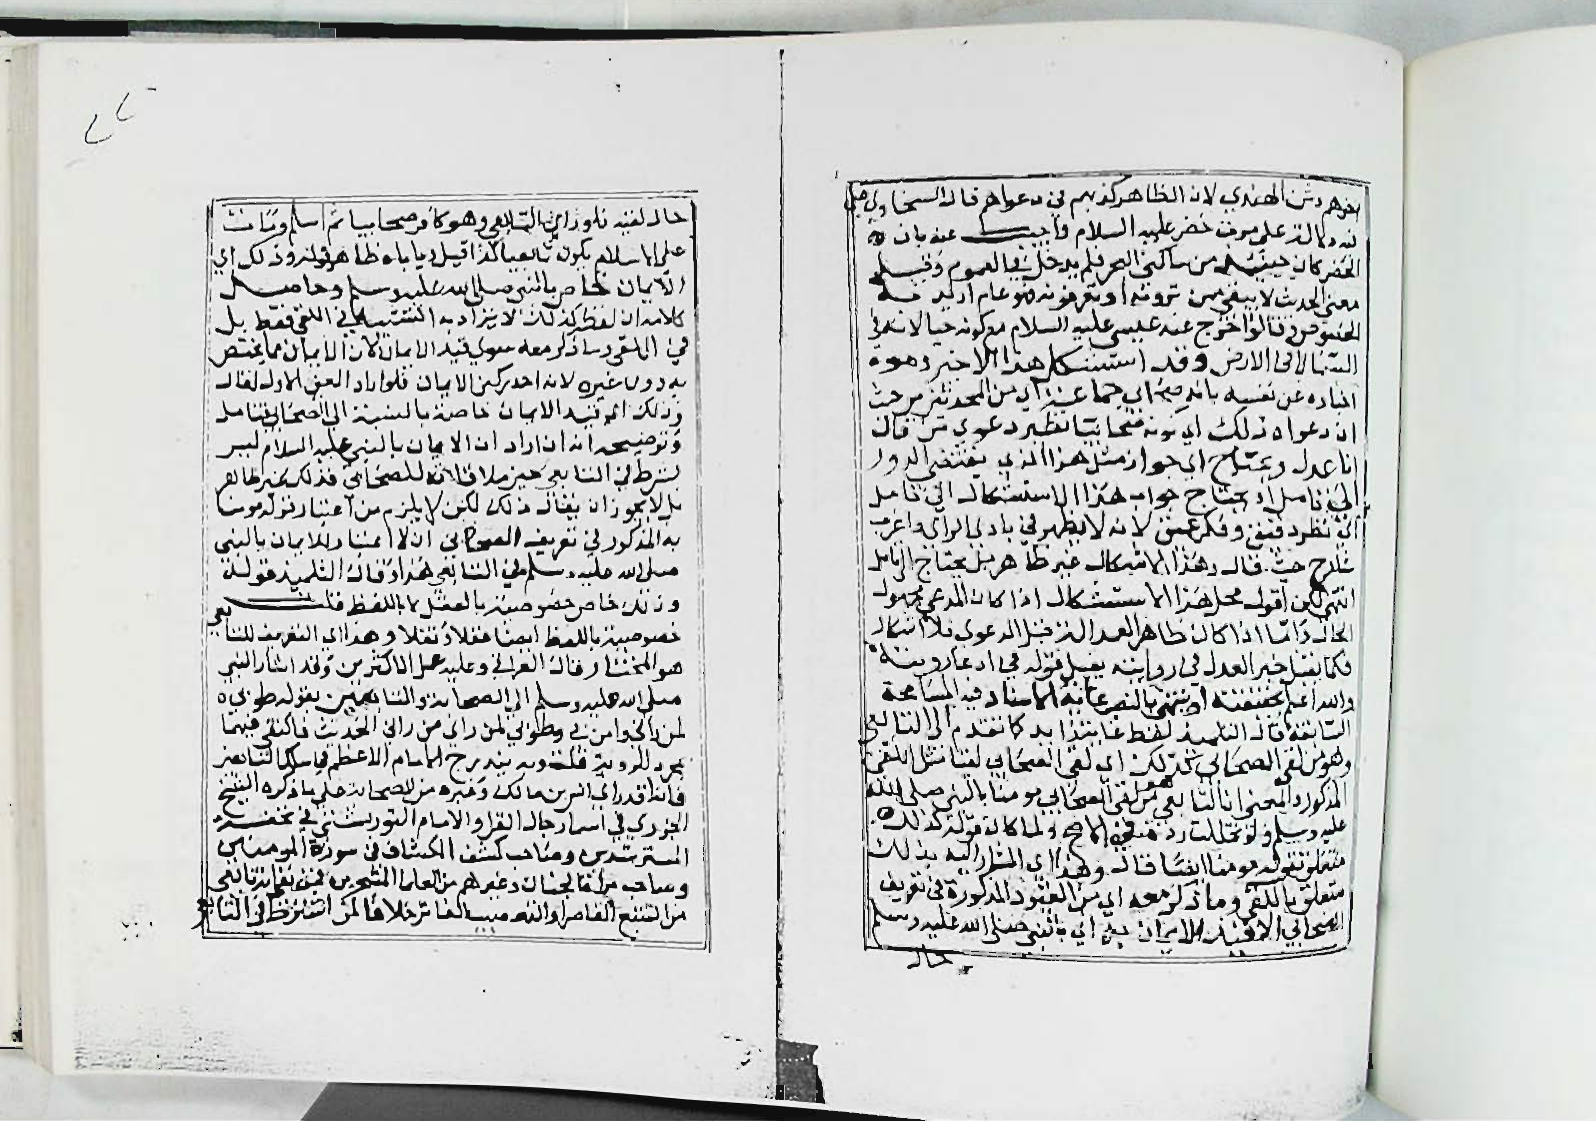 اخرهم رتن الهندي لان الظاهر كذبهم في دعواهم قال السخاوي هل
له دلالة على موت خضر عليه السلام واجيب عنه بان
الخضر كان حينئذ من ساكني البحر فلم يدخل في العموم وقيل
معنى الحديث لا يبقى ممن ترونه او تعرفونه فهو عام اريد به
الخصوص وقالوا خرج عنه عيسى عليه السلام مع كونه حيا لانه في
السماء لا في الارض وقد استشكل هذا الاخير وهو
اخباره عن نفسه بانه صحابي جماعة اي من المحدثين من حيث
ان دعواه ذلك اي كونه صحابيا نظير دعوى من قال
انا عدل ويحتاج اي جواز مثل هذا الذي يقتضي الدور
الى تامل او يحتاج جواب هذا الاستشكال الى تامل
اي نظر دقيق وفكر عميق لانه لا يظهر في بادي الراي واغرب
شارح حيث قال وهذا الاشكال غير ظاهر بل يحتاج الى تامل
انتهى لكن اقول محل هذا الاستشكال اذا كان المدعي مجهول
الحال واما اذا كان ظاهر العدالة قبل الدعوى فلا اشكال
فكما يقبل خبر العدل في روايته يقبل قوله في ادعاء رويته
والله اعلم بحقيقته او ينتهي بالنصب غاية الاسناد فيه المسامحة
السابقة قال التلميذ لفظ غاية زايد كما تقدم الى التابعي
وهو من لقي الصحابي كذلك اي لقي الصحابي لقيا مثل اللقي
المذكور والمعنى ان التابعي هو من لقي الصحابي مومنا بالنبي صلى الله
عليه وسلم ولو تخللت ردة في الاصح ولما كان قوله كذلك
متعلق بقوله مومنا ايضا قال وهذا اي المشار اليه بذلك
متعلق باللقي وما ذكر معه اي من القيود المذكورة في تعريف
الصحابي الا قيد الايمان به اي بالنبي صلى الله عليه وسلم
حال
حال لقيه فلو راى التابعي وهو كافر صحابيا ثم اسلم ومات
على الاسلام يكون تابعيا كذا قيل وياباه ظاهر قوله وذلك اي
الايمان خاص بالنبي صلى الله عليه وسلم وحاصل
كلامه ان لفظ كذلك لا يراد به التشبيه في اللقي فقط بل
في اللقي وما ذكر معه سوى قيد الايمان لان الايمان مما يختص
به دون غيره لانه احد ركني الايمان فلو اراد المعنى الاول لقال
وذلك اي قيد الايمان خاصة بالنسبة الى الصحابي فتامل
وتوضيحه انه ان اراد ان الايمان بالنبي عليه السلام ليس
بشرط في التابعي حين ملاقاته للصحابي فذلك غير ظاهر
بل لا يجوز ان يقال ذلك لكن لا يلزم من اعتبار قوله مومنا
به المذكور في تعريف الصحابي ان لا اعتبار للايمان بالنبي
صلى الله عليه وسلم في التابعي هذا وقال التلميذ قوله
وذلك خاص خصوصيته بالعقل لا باللفظ قلت
خصوصيته باللفظ ايضا عقلا ونقلا وهذا اي التعريف للتابعي
هو المختار وقال العراقي وعليه عمل الاكثرين وقد اشار النبي
صلى الله عليه وسلم الى الصحابة والتابعين بقوله طوبى
لمن راني وامن بي وطوبى لمن راى من راني الحديث فاكتفى فيهما
بمجرد الروية قلت وبه يندرج الامام الاعظم في سلك التابعين
فانه قد راى انس بن مالك وغيره من الصحابة على ما ذكره الشيخ
الجزري في اسماء رجال القراء والامام التوربشتي في تحفة
المسترشدين وصاحب كشف الكشاف في سورة المومنين
وصاحب مراة الجنان وغيرهم من العلماء المتبحرين فمن نفى انه تابعي
من التتبع القاصر او التعصب الفاتر خلافا لمن اشترط في التابعي